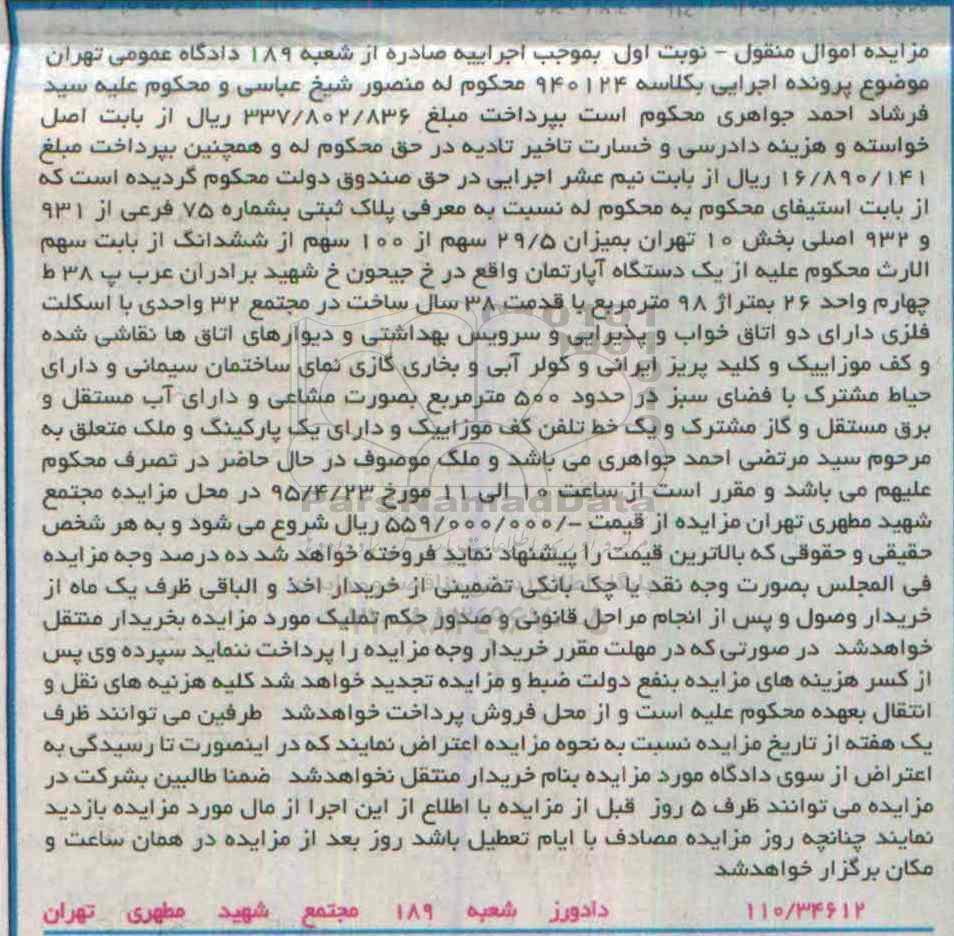 مزایده اموال منقول - نوبت اول بموجب اجراییه صادره از شعبه ۱۸۹ دادگاه عمومی تهران
موضوع پرونده اجرایی بکلاسه ۹۴۰۱۲۴ محکوم له منصور شیخ عباسی و محکوم علیه سید
فرشاد احمد جواهری محکوم است بپرداخت مبلغ ۳۳۷/۸۰۲/۸۳۶ ریال از بابت اصل
خواسته و هزینه دادرسی و خسارت تاخیر تادیه در حق محکوم له و همچنین بپرداخت مبلغ
۱۶/۸۹۰/۱۴۱ ریال از بابت نیم عشر اجرایی در حق صندوق دولت محکوم گردیده است که
از بابت استیفای محکوم به محکوم له نسبت به معرفی پلاک ثبتی بشماره ۷۵ فرعی از ۹۳۱
و ۹۳۲ اصلی بخش ۱۰ تهران بمیزان ۲۹/۵ سهم از ۱۰۰ سهم از ششدانگ از بابت سهم
الارث محکوم علیه از یک دستگاه آپارتمان واقع در خ جیحون خ شهید برادران عرب پ ۳۸ ط
چهارم واحد ۲۶ بمتراژ ۹۸ مترمربع با قدمت ۳۸ سال ساخت در مجتمع ۳۲ واحدی با اسکلت
فلزی دارای دو اتاق خواب و پذیرایی و سرویس بهداشتی و دیوارهای اتاق ها نقاشی شده
و کف موزاییک و کلید پریز ایرانی و کولر آبی و بخاری گازی نمای ساختمان سیمانی و دارای
حیاط مشترک با فضای سبز در حدود ۵۰۰ مترمربع بصورت مشاعی و دارای آب مستقل و
برق مستقل و گاز مشترک و یک خط تلفن کف موزاییک و دارای یک پارکینگ و ملک متعلق به
مرحوم سید مرتضی احمد جواهری می باشد و ملک موصوف در حال حاضر در تصرف محکوم
علیهم می باشد و مقرر است از ساعت ۱۰ الی ۱۱ مورخ ۹۵/۴/۲۳ در محل مزایده مجتمع
شهید مطهری تهران مزایده از قیمت -/۵۵۹/۰۰۰/۰۰۰ ریال شروع می شود و به هر شخص
حقیقی و حقوقی که بالاترین قیمت را پیشنهاد نماید فروخته خواهد شد ده درصد وجه مزایده
فی المجلس بصورت وجه نقد یا چک بانکی تضمینی از خریدار اخذ و الباقی ظرف یک ماه از
خریدار وصول و پس از انجام مراحل قانونی و صدور حکم تملیک مورد مزایده بخریدار منتقل
خواهدشد در صورتی که در مهلت مقرر خریدار وجه مزایده را پرداخت ننماید سپرده وی پس
از کسر هزینه های مزایده بنفع دولت ضبط و مزایده تجدید خواهد شد کلیه هزنیه های نقل و
انتقال بعهده محکوم علیه است و از محل فروش پرداخت خواهدشد طرفین می توانند ظرف
یک هفته از تاریخ مزایده نسبت به نحوه مزایده اعتراض نمایند که در اینصورت تا رسیدگی به
اعتراض از سوی دادگاه مورد مزایده بنام خریدار منتقل نخواهدشد ضمنا طالبین بشرکت در
مزایده می توانند ظرف ۵ روز قبل از مزایده با اطلاع از این اجرا از مال مورد مزایده بازدید
نمایند چنانچه روز مزایده مصادف با ایام تعطیل باشد روز بعد از مزایده در همان ساعت و
مکان برگزار خواهدشد
۱۱۰/۳۴۶۱۲ دادورز شعبه ۱۸۹ مجتمع شهید مطهری تهران
ParsNamadData